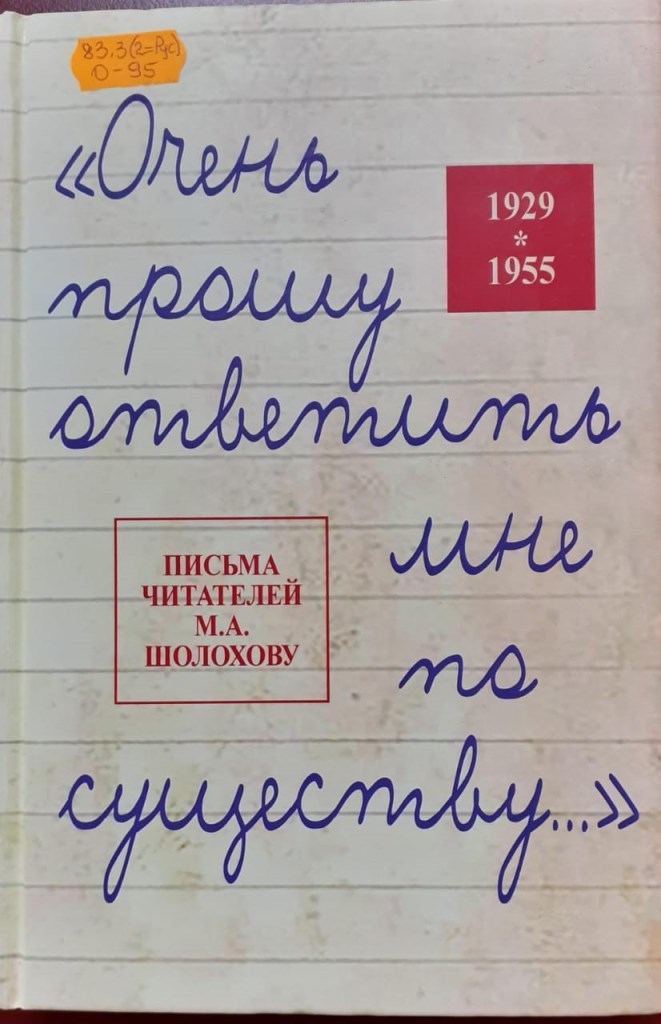 83.3(2=Рус)
О-95
«Очень
1929
*
1955
прошу
ответить
мне
ПИСЬМА
ЧИТАТЕЛЕЙ
М.А.
ШОЛОХОВУ
по
существу...»